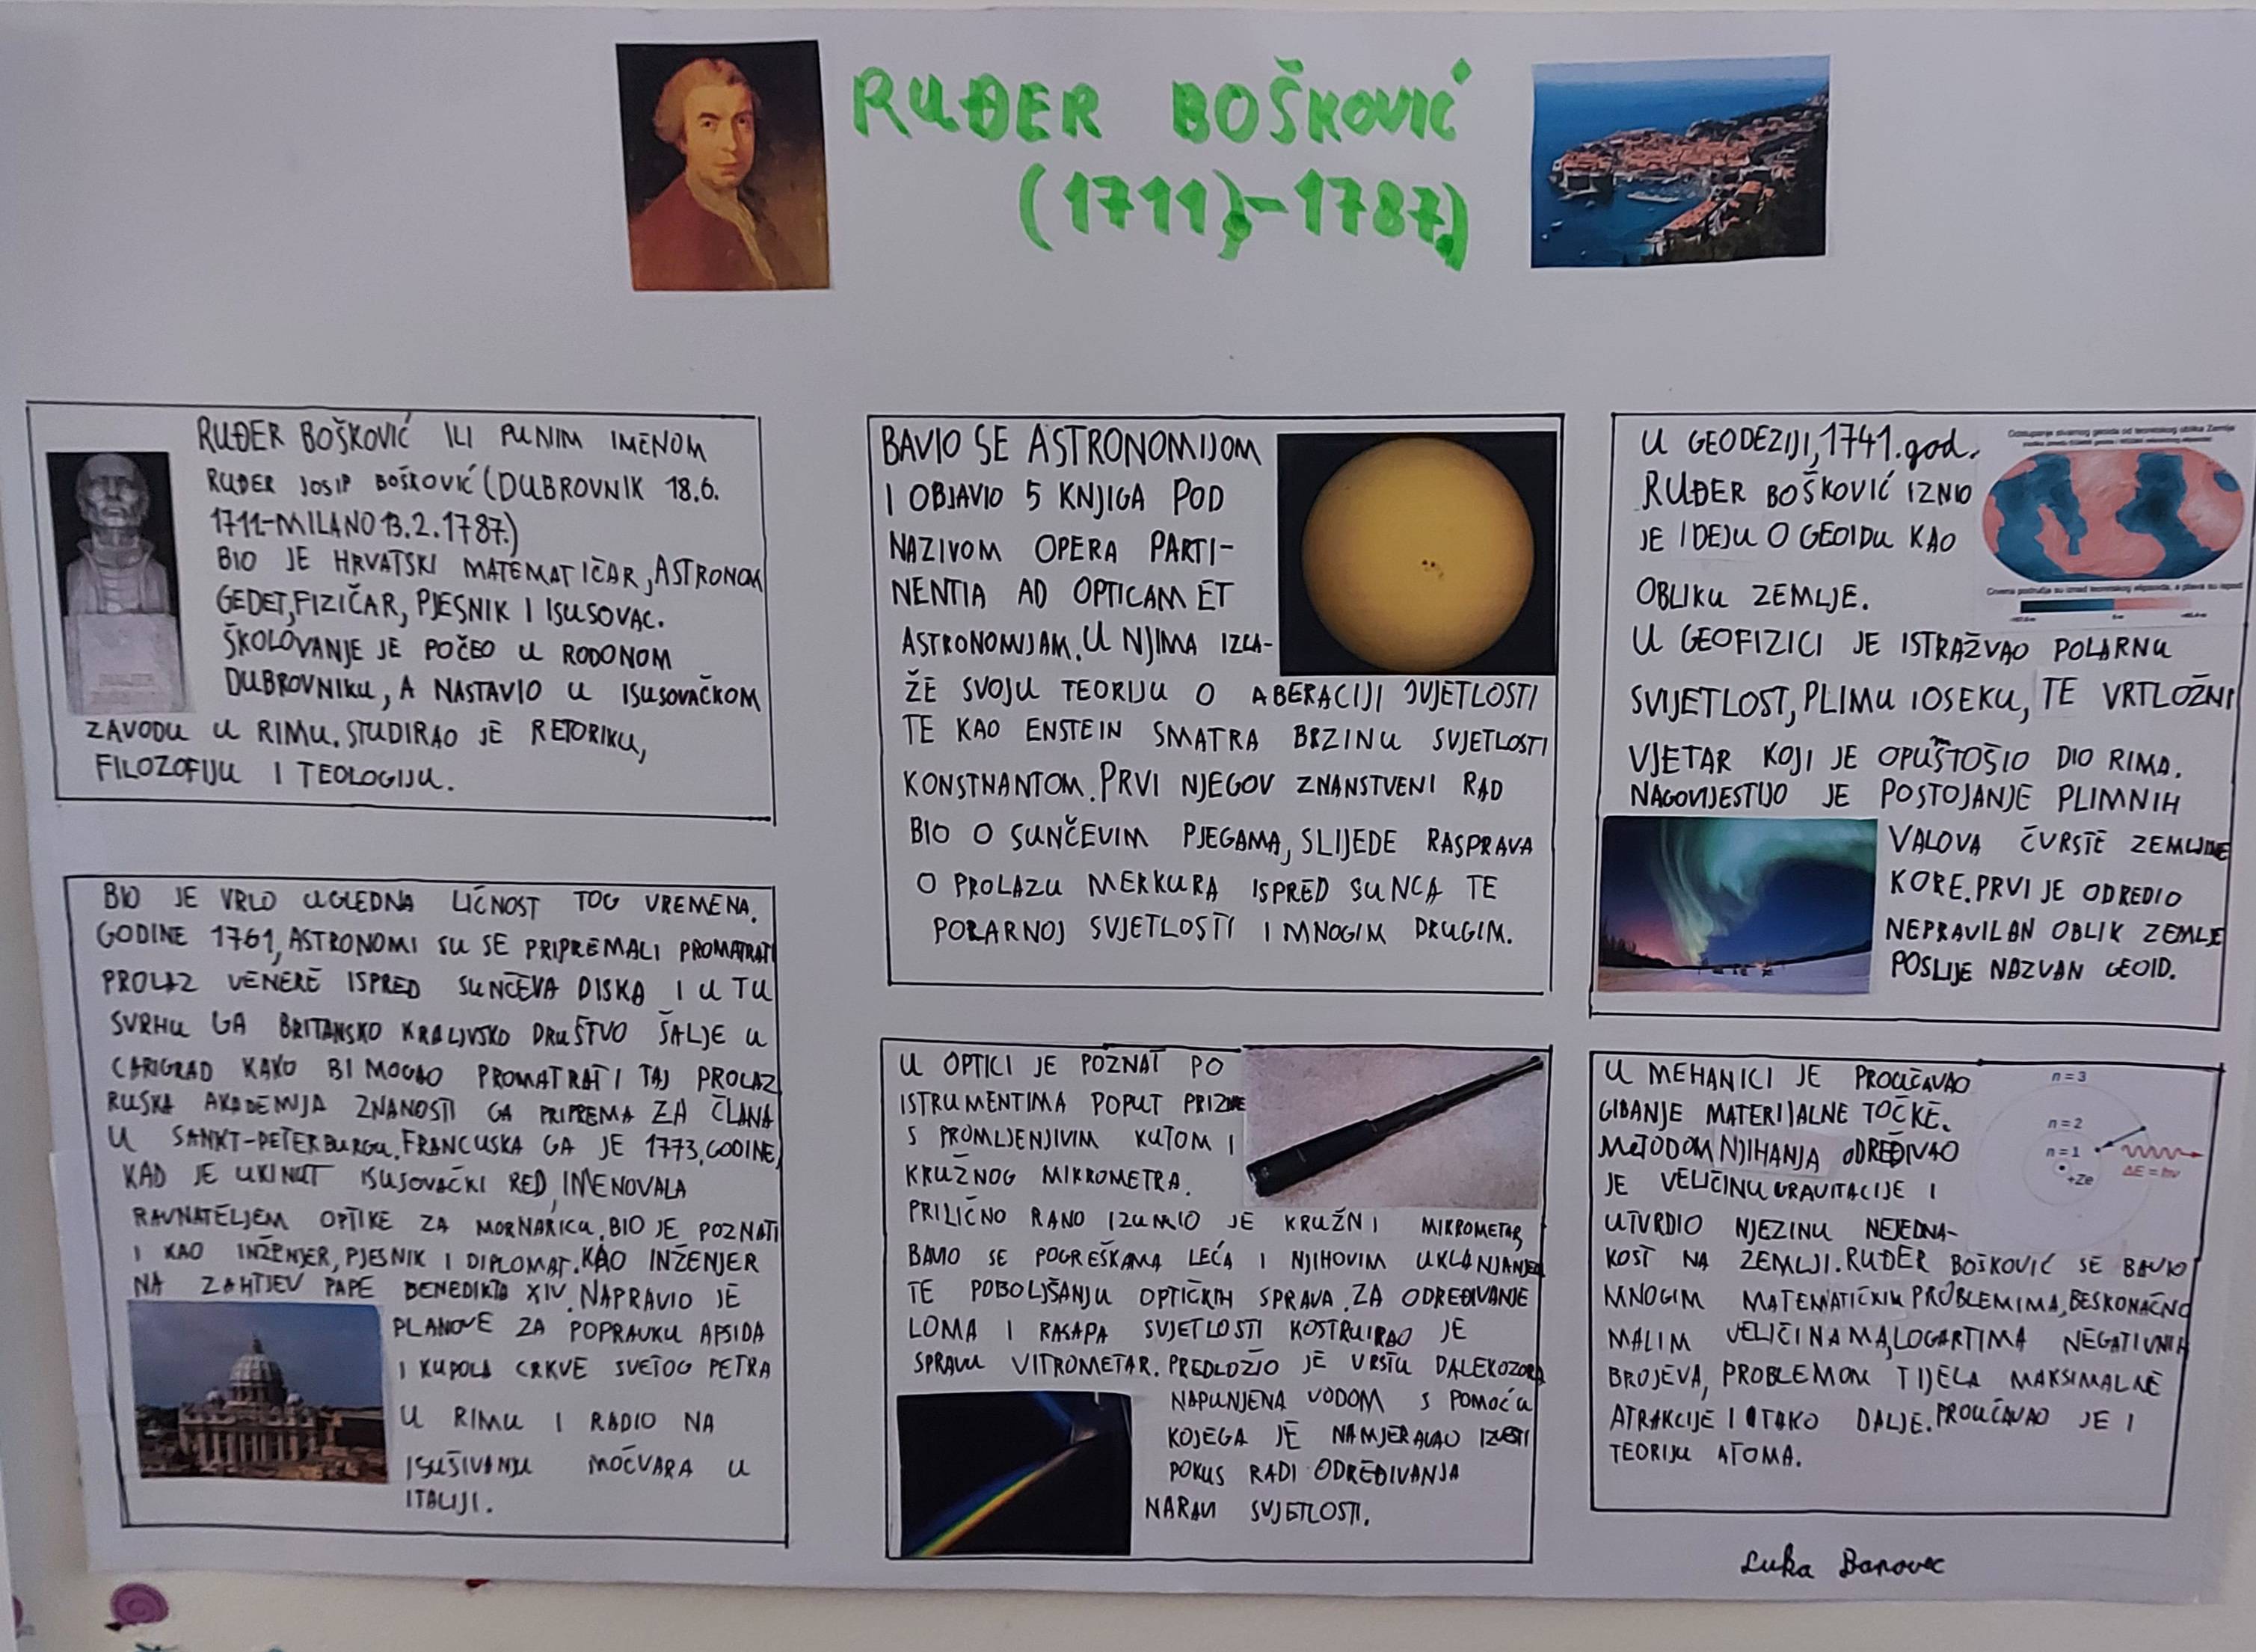 RUĐER BOŠKOVIĆ
(1711)-1787.)
RUĐER BOŠKOVIĆ ILI PUNIM IMENOM
RUĐER JOSIP BOŠKOVIĆ (DUBROVNIK 18.6.
1711.-MILANO 13.2.1787.)
BIO JE HRVATSKI MATEMATIČAR, ASTRONOM
GEDET, FIZIČAR, PJESNIK I ISUSOVAC.
ŠKOLOVANJE JE POČEO U RODONOM
DUBROVNIKU, A NASTAVIO U ISUSOVAČKOM
ZAVODU U RIMU. STUDIRAO JE RETORIKU,
FILOZOFIJU I TEOLOGIJU.
BIO JE VRLO UGLEDNA LIČNOST TOG VREMENA.
GODINE 1761, ASTRONOMI SU SE PRIPREMALI PROMATRATI
PROLAZ VENERE ISPRED SUNČEVA DISKA I U TU
SVRHU GA BRITANSKO KRALJVSKO DRUŠTVO ŠALJE U
CARIGRAD KAKO BI MOGAO PROMATRATI TAJ PROLAZ
RUSKA AKADEMIJA ZNANOSTI GA PRIPREMA ZA ČLANA
U SANKT-PETERBURGU. FRANCUSKA GA JE 1773. GODINE,
KAD JE UKINUT ISUSOVAČKI RED, IMENOVALA
RAVNATELJEM OPTIKE ZA MORNARICU. BIO JE POZNATI
I KAO INŽENJER, PJESNIK I DIPLOMAT. KAO INŽENJER
NA ZAHTJEV PAPE BENEDIKTA XIV. NAPRAVIO JE
PLANOVE ZA POPRAVKU APSIDA
I KUPOLA CRKVE SVETOG PETRA
U RIMU I RADIO NA
ISUŠIVANJU MOČVARA U
ITALIJI.
BAVIO SE ASTRONOMIJOM
I OBJAVIO 5 KNJIGA POD
NAZIVOM OPERA PARTI-
NENTIA AD OPTICAM ET
ASTRONOMIJAM. U NJIMA IZLA-
ŽE SVOJU TEORIJU O ABERACIJI SVJETLOSTI
TE KAO ENSTEIN SMATRA BRZINU SVJETLOSTI
KONSTNANTOM. PRVI NJEGOV ZNANSTVENI RAD
BIO O SUNČEVIM PJEGAMA, SLIJEDE RASPRAVA
O PROLAZU MERKURA ISPRED SUNCA TE
POLARNOJ SVJETLOSTI I MNOGIM DRUGIM.
U OPTICI JE POZNAT PO
ISTRUMENTIMA POPUT PRIZME
S PROMLJENJIVIM KUTOM I
KRUŽNOG MIKROMETRA.
PRILIČNO RANO IZUMIO JE KRUŽNI MIKROMETAR,
BAVIO SE POGREŠKAMA LEĆA I NJIHOVIM UKLANJANJEM
TE POBOLJŠANJU OPTIČKIH SPRAVA. ZA ODREĐIVANJE
LOMA I RASAPA SVJETLOSTI KOSTRUIRAO JE
SPRAVU VITROMETAR. PREDLOŽIO JE VRSTU DALEKOZORA
NAPUNJENA VODOM S POMOĆU
KOJEGA JE NAMJERAVAO IZVESTI
POKUS RADI ODREĐIVANJA
NARAVI SVJETLOSTI.
U GEODEZIJI, 1741. god.
RUĐER BOŠKOVIĆ IZNIO
JE IDEJU O GEOIDU KAO
OBLIKU ZEMLJE.
U GEOFIZICI JE ISTRAŽVAO POLARNU
SVIJETLOST, PLIMU I OSEKU, TE VRTLOŽNI
VJETAR KOJI JE OPUSTOŠIO DIO RIMA.
NAGOVIJESTIJO JE POSTOJANJE PLIMNIH
VALOVA ČVRSTE ZEMLJINE
KORE. PRVI JE ODREDIO
NEPRAVILAN OBLIK ZEMLJE
POSLIJE NAZVAN GEOID.
Odstupanje stvarnog geoida od teoretskog oblika Zemlje
Crvena područja su iznad teoretskog elipsoida, a plava su ispod
U MEHANICI JE PROUČAVAO
GIBANJE MATERIJALNE TOČKE.
METODOM NJIHANJA ODREĐIVAO
JE VELIČINU GRAVITACIJE I
UTVRDIO NJEZINU NEJEDNA-
KOST NA ZEMLJI. RUĐER BOŠKOVIĆ SE BAVIO
MNOGIM MATEMATIČKIM PROBLEMIMA, BESKONAČNO
MALIM VELIČINAMA, LOGARTIMA NEGATIVNIH
BROJEVA, PROBLEMOM TIJELA MAKSIMALNE
ATRAKCIJE I TAKO DALJE. PROUČAVAO JE I
TEORIJU ATOMA.
n = 3
n = 2
n = 1
+Ze
ΔE = hν
Luka Banovec